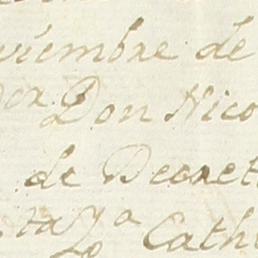 viembre de
Don Nico
de Decret
Cath